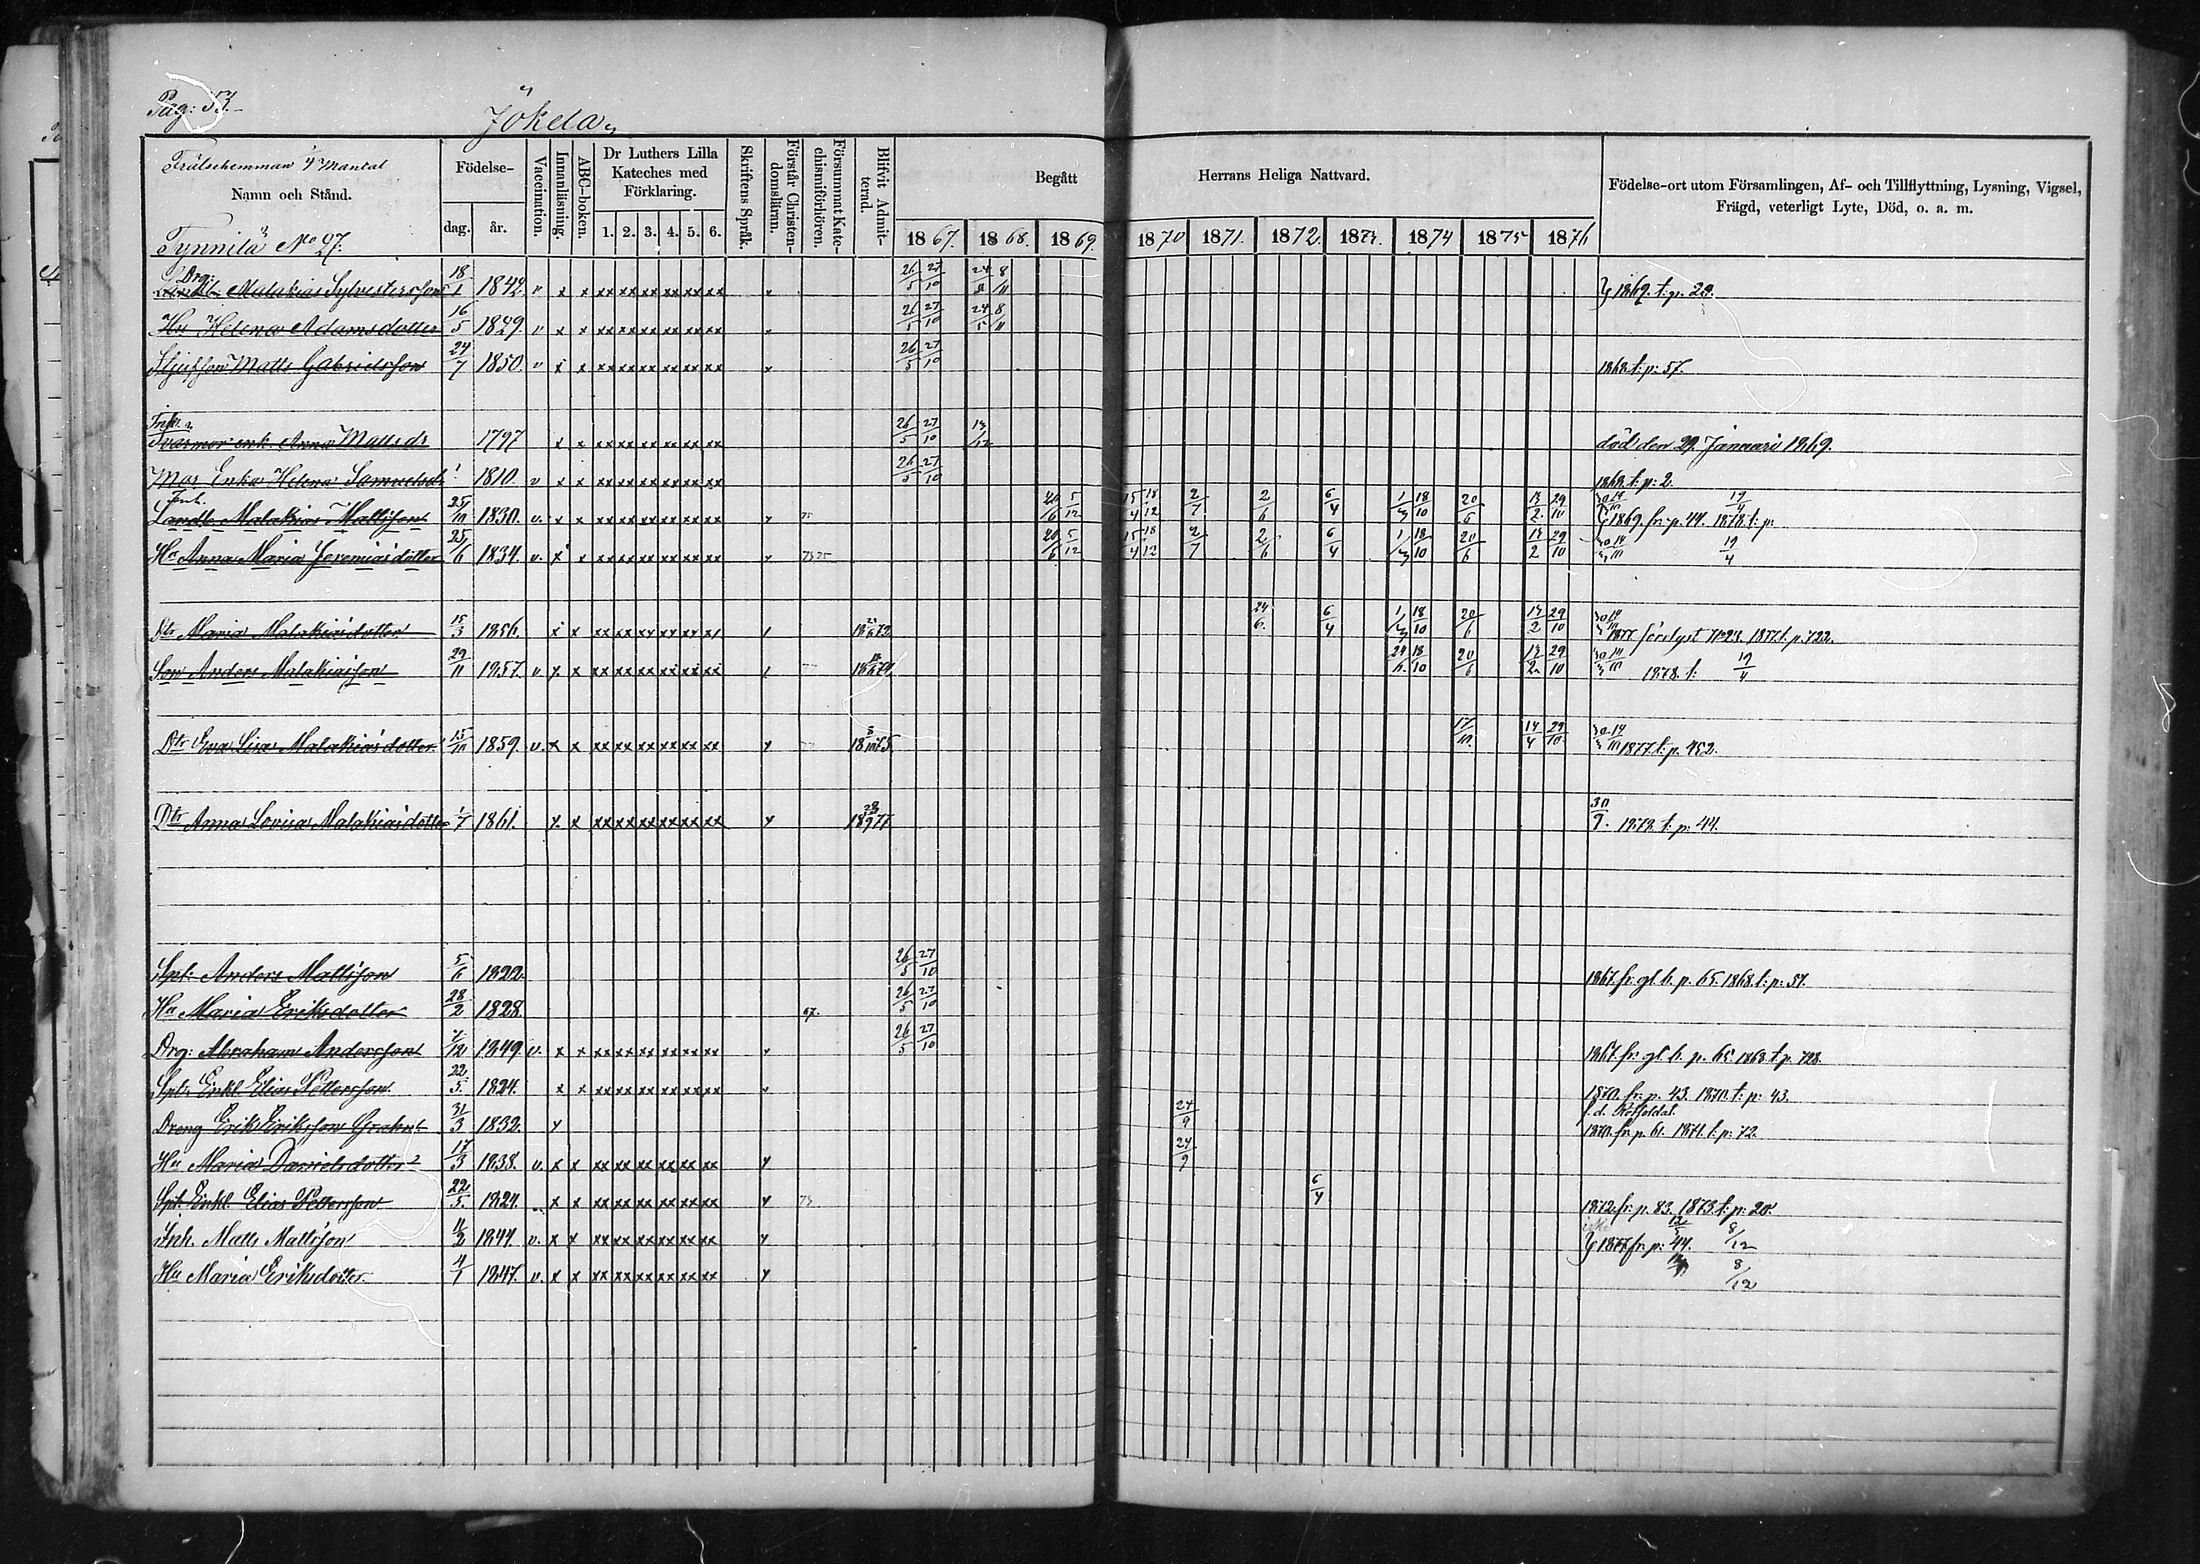 Pag: 53.
Jökela
Frälsehemman Mantal
Namn och Stånd.
Tynnilä No 27.
Födelse-
dag. år.
Vaccination.
Innanläsning.
ABC-boken.
Dr Luthers Lilla Kateches med Förklaring.
1. 2. 3. 4. 5. 6.
Skriftens Språk.
Förstår Christendomsläran.
Försummat Katechismiförhören.
Blifvit Admitterad.
Begått Herrans Heliga Nattvard.
1867. 1868. 1869. 1870 1871. 1872. 1873. 1874 1875 1876
Födelse-ort utom Församlingen, Af- och Tillflyttning, Lysning, Vigsel,
Frägd, veterligt Lyte, Död, o. a. m.
Drg: Malakias Sylvestersson 18/1 1842. v x x xx xx xx xx xx xx 26/5 27/10 1869. t. p.
Hu Helena Adamsdotter 16/5 1849. v x x xx xx xx xx xx xx 26/5 27/10 24/5 8/11
Matts Gabrielsson 24/7 1850. v x x xx xx xx xx xx xx 26/5 27/10 1868. t: p: 57.
Svärmor enk. Anna Mattsdr 1797 x x xx xx xx xx xx xx 26/5 27/10 död den 29 Januari 1869.
Mor Enka Helena Samuelsd. 1810. v x x xx xx xx xx xx xx 26/5 27/10 1868. t: p: 2.
Inh.
Landb. Malakias Mattsson 25/10 1830. v. x x xx xx xx xx xx xx 20/6 5/12 15/4 18/12 2/7 2/6 6/4 18/10 20/6 29/10 1869. fr: p. 44. 1878. t: p: 19/4
Hu Anna Maria Jeremiasdotter 25/6 1834. v. x x xx xx xx xx xx xx 73 75 20/6 5/12 15/4 18/12 2/7 2/6 6/4 18/10 20/6 29/10 19/4
Dtr Maria Malakiasdotter 15/3 1856. x x xx xx xx xx xx 1872. 24/6. 6/4 18/10 20/6 29/10 1877 förlyst 1877 t. p. 722.
Son Anders Malakiasson 29/11 1857. v x x xx xx xx xx xx xx 1874 24/6. 18/10 20/6 29/10 1878. t: 19/4
Dtr Eva Lisa Malakiasdotter 15/10 1859. v. x x xx xx xx xx xx xx 1875 17/10. 14/4 29/10 1877. t. p. 452.
Dtr Anna Lovisa Malakiasdotter 1/7 1861. x x xx xx xx xx xx xx 1877 30/9. 1878. t: p: 44.
Spt: Anders Mattsson 5/6 1820. 26/5 27/10 1867. fr. gl. b. p. 65. 1868. t: p: 57.
Hu Maria Eriksdotter 28/2 1828. 67. 26/5 27/10
Drg: Abraham Andersson /12 1849. v. x x xx xx xx xx xx xx 26/5 27/10 1867. fr: gl. b. p. 65. 1868 t. p. 728.
Spt. Enkl Elias Pettersson 22/5. 1824. x x xx xx xx xx xx xx 1870. fr. p. 43. 1870. t: p: 43.
Dreng Erik Eriksson 31/3 1832. x 24/9 1870. fr. p. 61. 1871. t: p: 72.
Hu Maria Danielsdotter 17/3 1838. v. x x xx xx xx xx xx xx 24/9
Spt. Enkl. Elias Pettersson 22/5. 1824. x x xx xx xx xx xx xx 73 6/4 1872. fr. p. 83. 1873. t: p: 20.
Inh. Matts Mattsson 1844. v. x x xx xx xx xx xx xx 1877 fr. p: 44. 8/12
Hu Maria Eriksdotter. 4/1 1847. v. x x xx xx xx xx xx xx 8/12